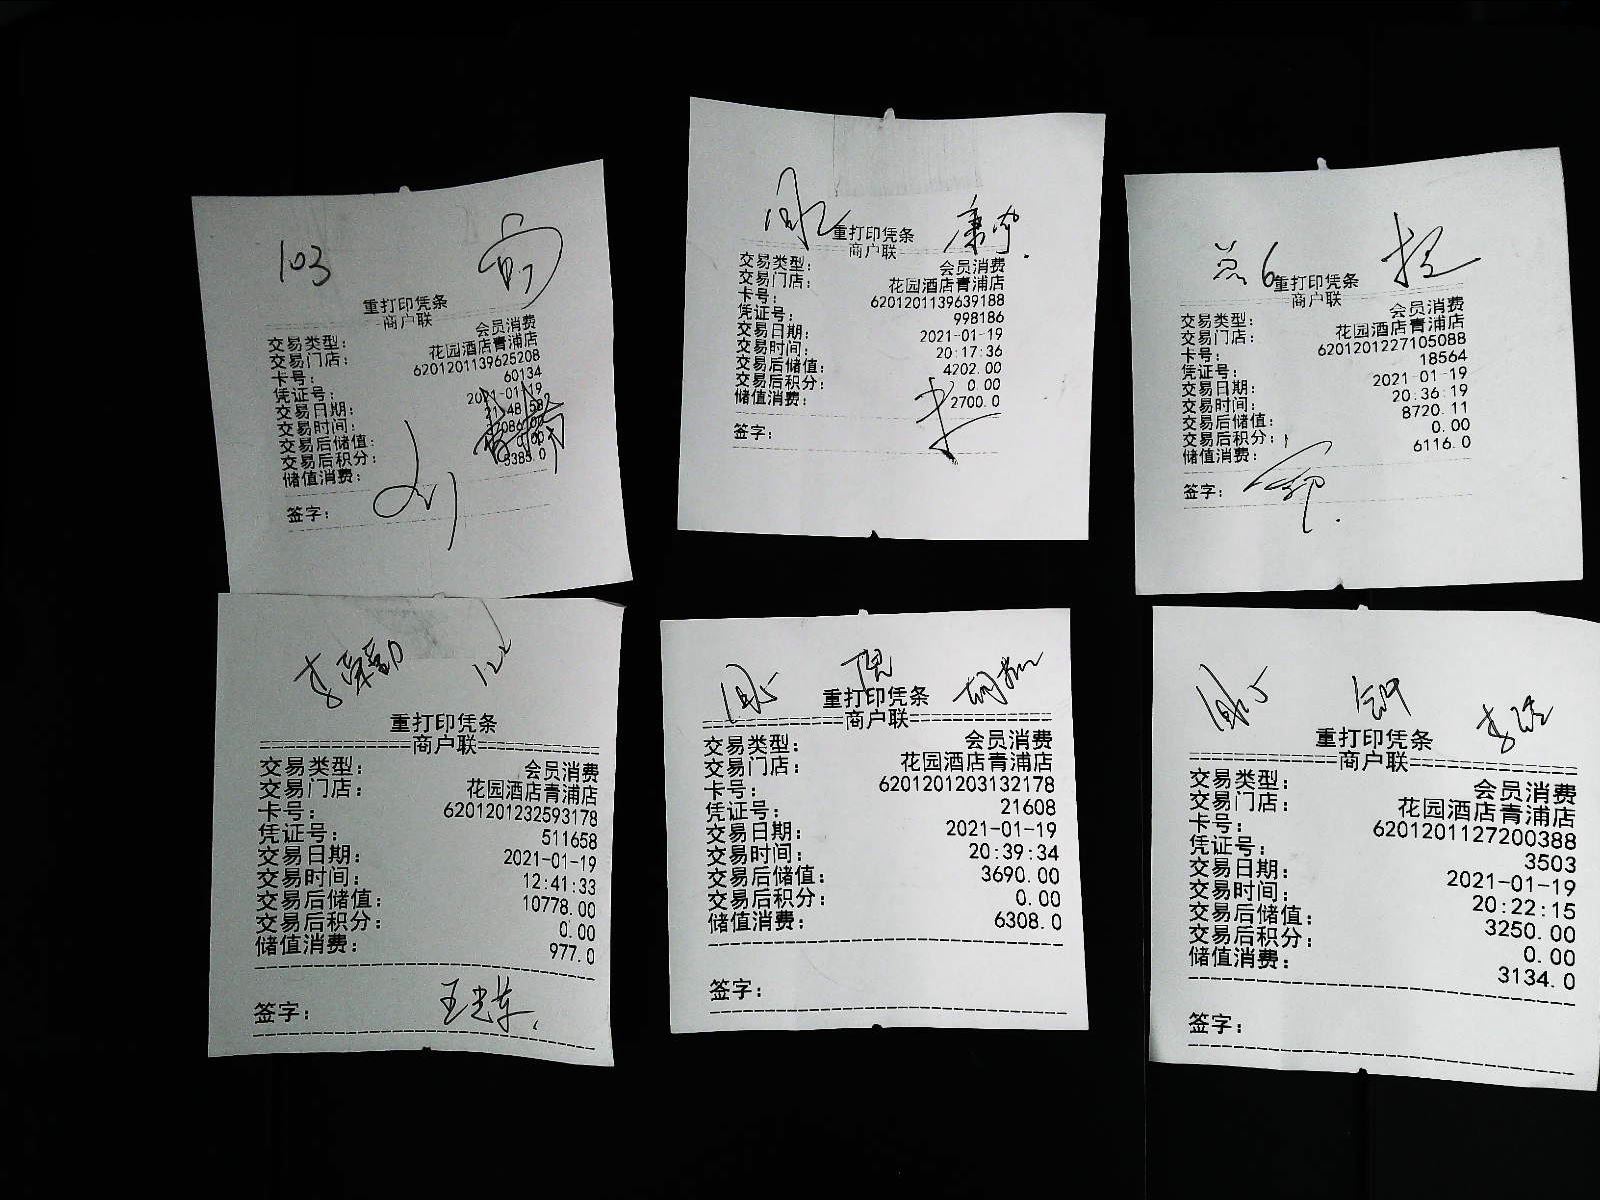 103
重打印凭条
商户联
交易类型： 会员消费
交易门店： 花园酒店青浦店
卡号： 6201201139625208
凭证号： 60134
交易日期： 2021-01-19
交易时间：
交易后储值：
交易后积分： 0.00
储值消费： 5385.0
签字： 刘
康
重打印凭条
商户联
交易类型： 会员消费
交易门店： 花园酒店青浦店
卡号： 6201201139639188
凭证号： 998186
交易日期： 2021-01-19
交易时间： 20:17:36
交易后储值： 4202.00
交易后积分： 0.00
储值消费： 2700.0
签字：
总6
重打印凭条
商户联
交易类型： 会员消费
交易门店： 花园酒店青浦店
卡号： 6201201227105088
凭证号： 18564
交易日期： 2021-01-19
交易时间： 20:36:19
交易后储值： 8720.11
交易后积分： 0.00
储值消费： 6116.0
签字：
李荣勤 122
重打印凭条
商户联
交易类型： 会员消费
交易门店： 花园酒店青浦店
卡号： 6201201232593178
凭证号： 511658
交易日期： 2021-01-19
交易时间： 12:41:33
交易后储值： 10778.00
交易后积分： 0.00
储值消费： 977.0
签字： 王光东
重打印凭条
商户联
交易类型： 会员消费
交易门店： 花园酒店青浦店
卡号： 6201201203132178
凭证号： 21608
交易日期： 2021-01-19
交易时间： 20:39:34
交易后储值： 3690.00
交易后积分： 0.00
储值消费： 6308.0
签字：
重打印凭条
商户联
交易类型： 会员消费
交易门店： 花园酒店青浦店
卡号： 6201201127200388
凭证号： 3503
交易日期： 2021-01-19
交易时间： 20:22:15
交易后储值： 3250.00
交易后积分： 0.00
储值消费： 3134.0
签字：